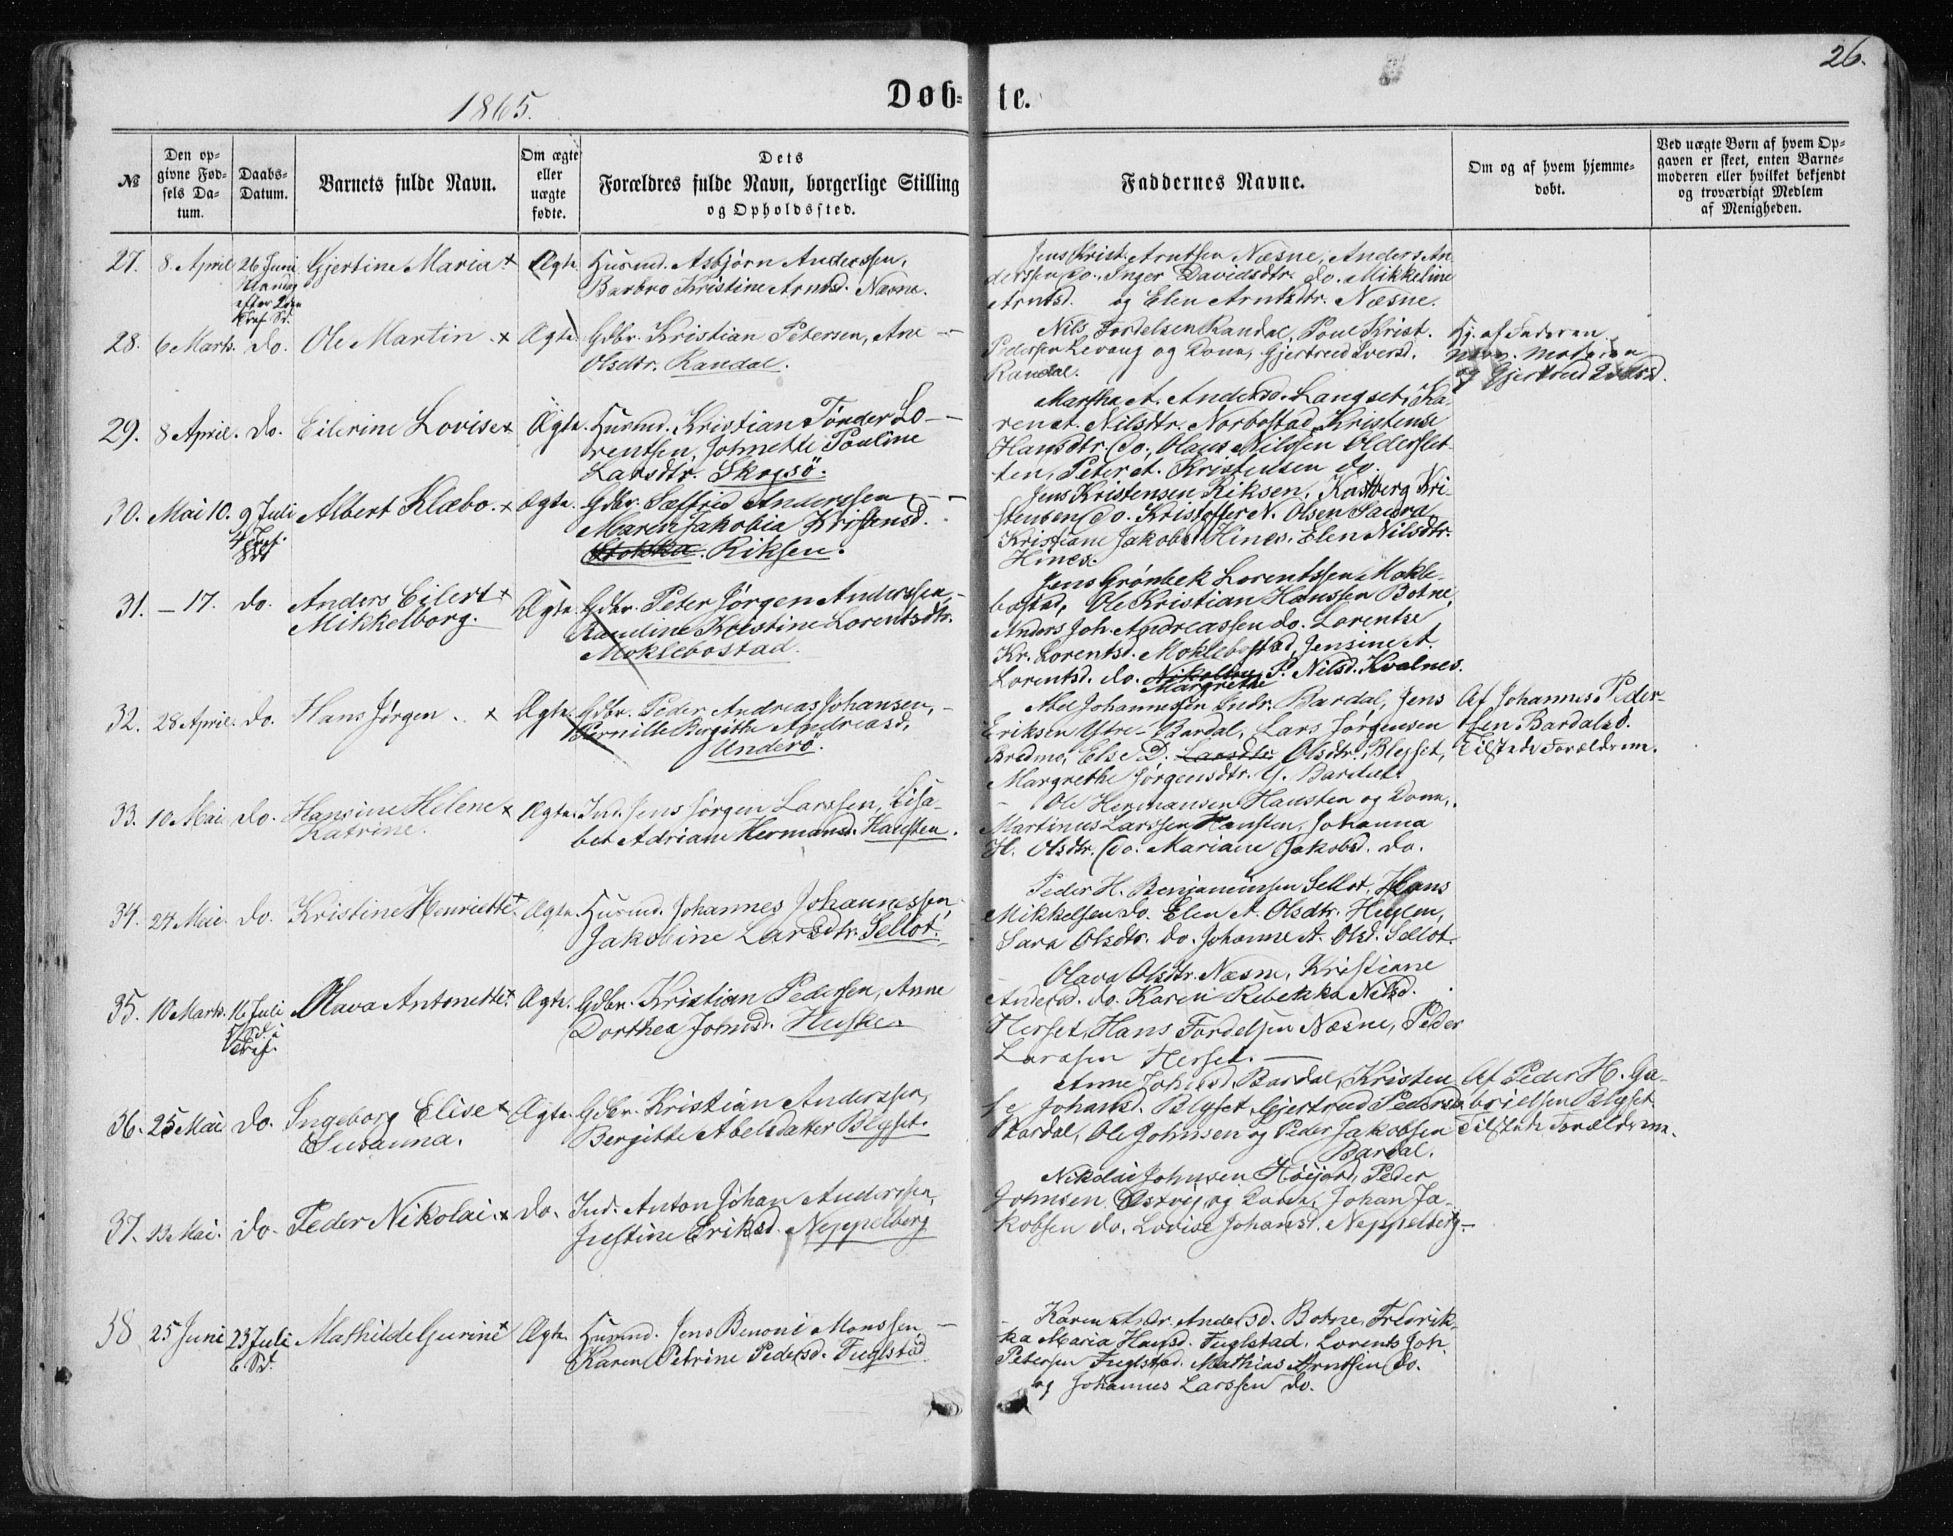 26.
1865.
Døb=te.
№
Den op=
givne Fød=
sels Da=
tum.
Daabs=
Datum.
Barnets fulde Navn.
Om ægte
eller
uægte
fødte.
Dets
Forældres fulde Navn, borgerlige Stilling
og Opholdssted.
Faddernes Navne.
Om og af hvem hjemme=
døbt.
Ved uægte Børn af hvem Op=
gaven er skeet, enten Barne=
moderen eller hvilket bekjendt
og troværdigt Medlem
af Menigheden.
27. 8 April 26 Juni Gjertine Maria × Ægte. Husmd. Asbjørn Anderssen,
Barbro Kristine Arntsd. Næsne.
Jens Krist. Arntsen Næsne, Anders An
derssen do. Inger Davidsdtr. do. Mikkeline
Arntsd. og Elen Arntsdtr. Næsne.
28. 6 Marts. do. Ole Martin × Ægte. Gdbr. Kristian Petersen, Ane
Olsdtr. Randal.
Nils Tordelsen Randal, Poul Krist.
Pedersen Levang og Kona, Gjertrud Iversd.
Randal.
Hj. af Faderen
Moderen
og Gjertrud Iversd.
29. 8 April. do. Eilerine Lovise × Ægte. Husmd. Kristian Tønder Lo-
rentsen, Johnette Pauline
Larsdtr. Skogsö.
Martha A. Andersd. Langset, Ka
ren A. Nilsdtr. Norbostad, Kristense
Hansdtr. do., Olaus Nilssen Oldersslet
ten, Peter A. Kristensen do.
30. Mai 10. 9 Juli Albert Klæbo. × Ægte. Gdbr. Zeffrid Anderssen,
Maren Jakobia Kristensd.
Stokka. Riksen.
Jens Kristensen Riksen, Kastberg Kri-
stensen do. Kristoffer N. Olsen Saura
Kristiane Jakobs. Hines, Elen Nilsdtr.
Hines.
31. — 17. do. Anders Eilert ×
Mikkelborg.
Ægte. Gdbr. Peter Jørgen Anderssen,
Randine Kristine Lorentsdtr.
Moklebostad.
Jens Grønbek Lorentssen Mokle-
bostad, Ole Kristian Hanssen Botne,
Anders Joh. Andreassen do. Lorentse
Kr. Lorentsd. Moklebostad, Jensine A.
Lorentsd. do. Nikoline P. Nilsd. Kvalnes.
Margrethe
32. 28 April. do. Hans Jørgen × Ægte. Gdbr. Peder Andreas Johansen,
Pernille Birgitte Andreasd.
Underö.
Abel Johannessen Indr. Bardal, Jens
Eriksen Ytre-Bardal, Lars Jørgensen
Bredmo, Else D. Larsdtr. Olsdtr. Blesset,
Margrethe Jørgensdtr. Y. Bardal.
Af Johannes Peder-
sen Bardal d.
Tilstede Forældrene.
33. 10 Mai do. Hansine Helene ×
Katrine.
Ægte. Ind. Jens Jørgen Larssen, Lisa-
bet Adriane Hermansd. Hausten.
Ole Hermansen Hausten og Kona,
Martinus Larssen Hausten, Johanna
H. Olsdtr. do. Mariane Jakobsd. do.
34. 24 Mai do. Kristine Henriette × Ægte. Husmd. Johannes Johannessen
Jakobine Larsdtr. Sellot.
Peder H. Benjaminsen Sellot, Hans
Mikkelsen do. Elen A. Olsdtr. Husen,
Sara Olsdtr. do. Johanne A. Olsd. Sellot.
35. 10 Marts. 16 Juli Olava Antonette × Ægte. Gdbr. Kristian Pedersen, Anne
Dorthea Johnsd. Husker
Olava Olsdtr. Næsne, Kristiane
Andersd. do. Karen Rebekka Nilsd.
Herset, Hans Tordelsen Næsne, Peder
Larssen Herset.
36. 25 Mai do. Ingeborg Elise ×
Susanna.
Ægte. Gdbr. Kristian Anderssen,
Bergitte Abelsdatter Blyset.
Anne Johnsd. Bardal, Kristen
se Johansd. Blyset, Gjertrud Pedersd.
Bardal, Ole Johnsen og Peder Jakobsen
Bardal.
Af Peder H. Ga-
brielsen Blyset
Tilstede Forældrene.
37. 13 Mai. do. Peder Nikolai. × do. Ind. Anton Johan Anderssen,
Justine Eriksd. Neppelberg
Nikolai Johnsen Höijord, Peder
Johnsen Østvig og Kona, Johan Ja-
kobsen do. Lovise Johansd. Neppelberg.
38 25 Juni 23 Juli Mathilde Gurine × Ægte. Husmd. Jens Benoni Monssen,
6 Sd.
Karen Petrine Pedersd. Fuglstad
Karen A. Dr. Andersd. Botne, Fredrik-
ka Maria Hansd. Fuglstad, Lorents Joh.
Petersen Fuglstad. Mathias Arntsen do.
og Johannes Larssen do.